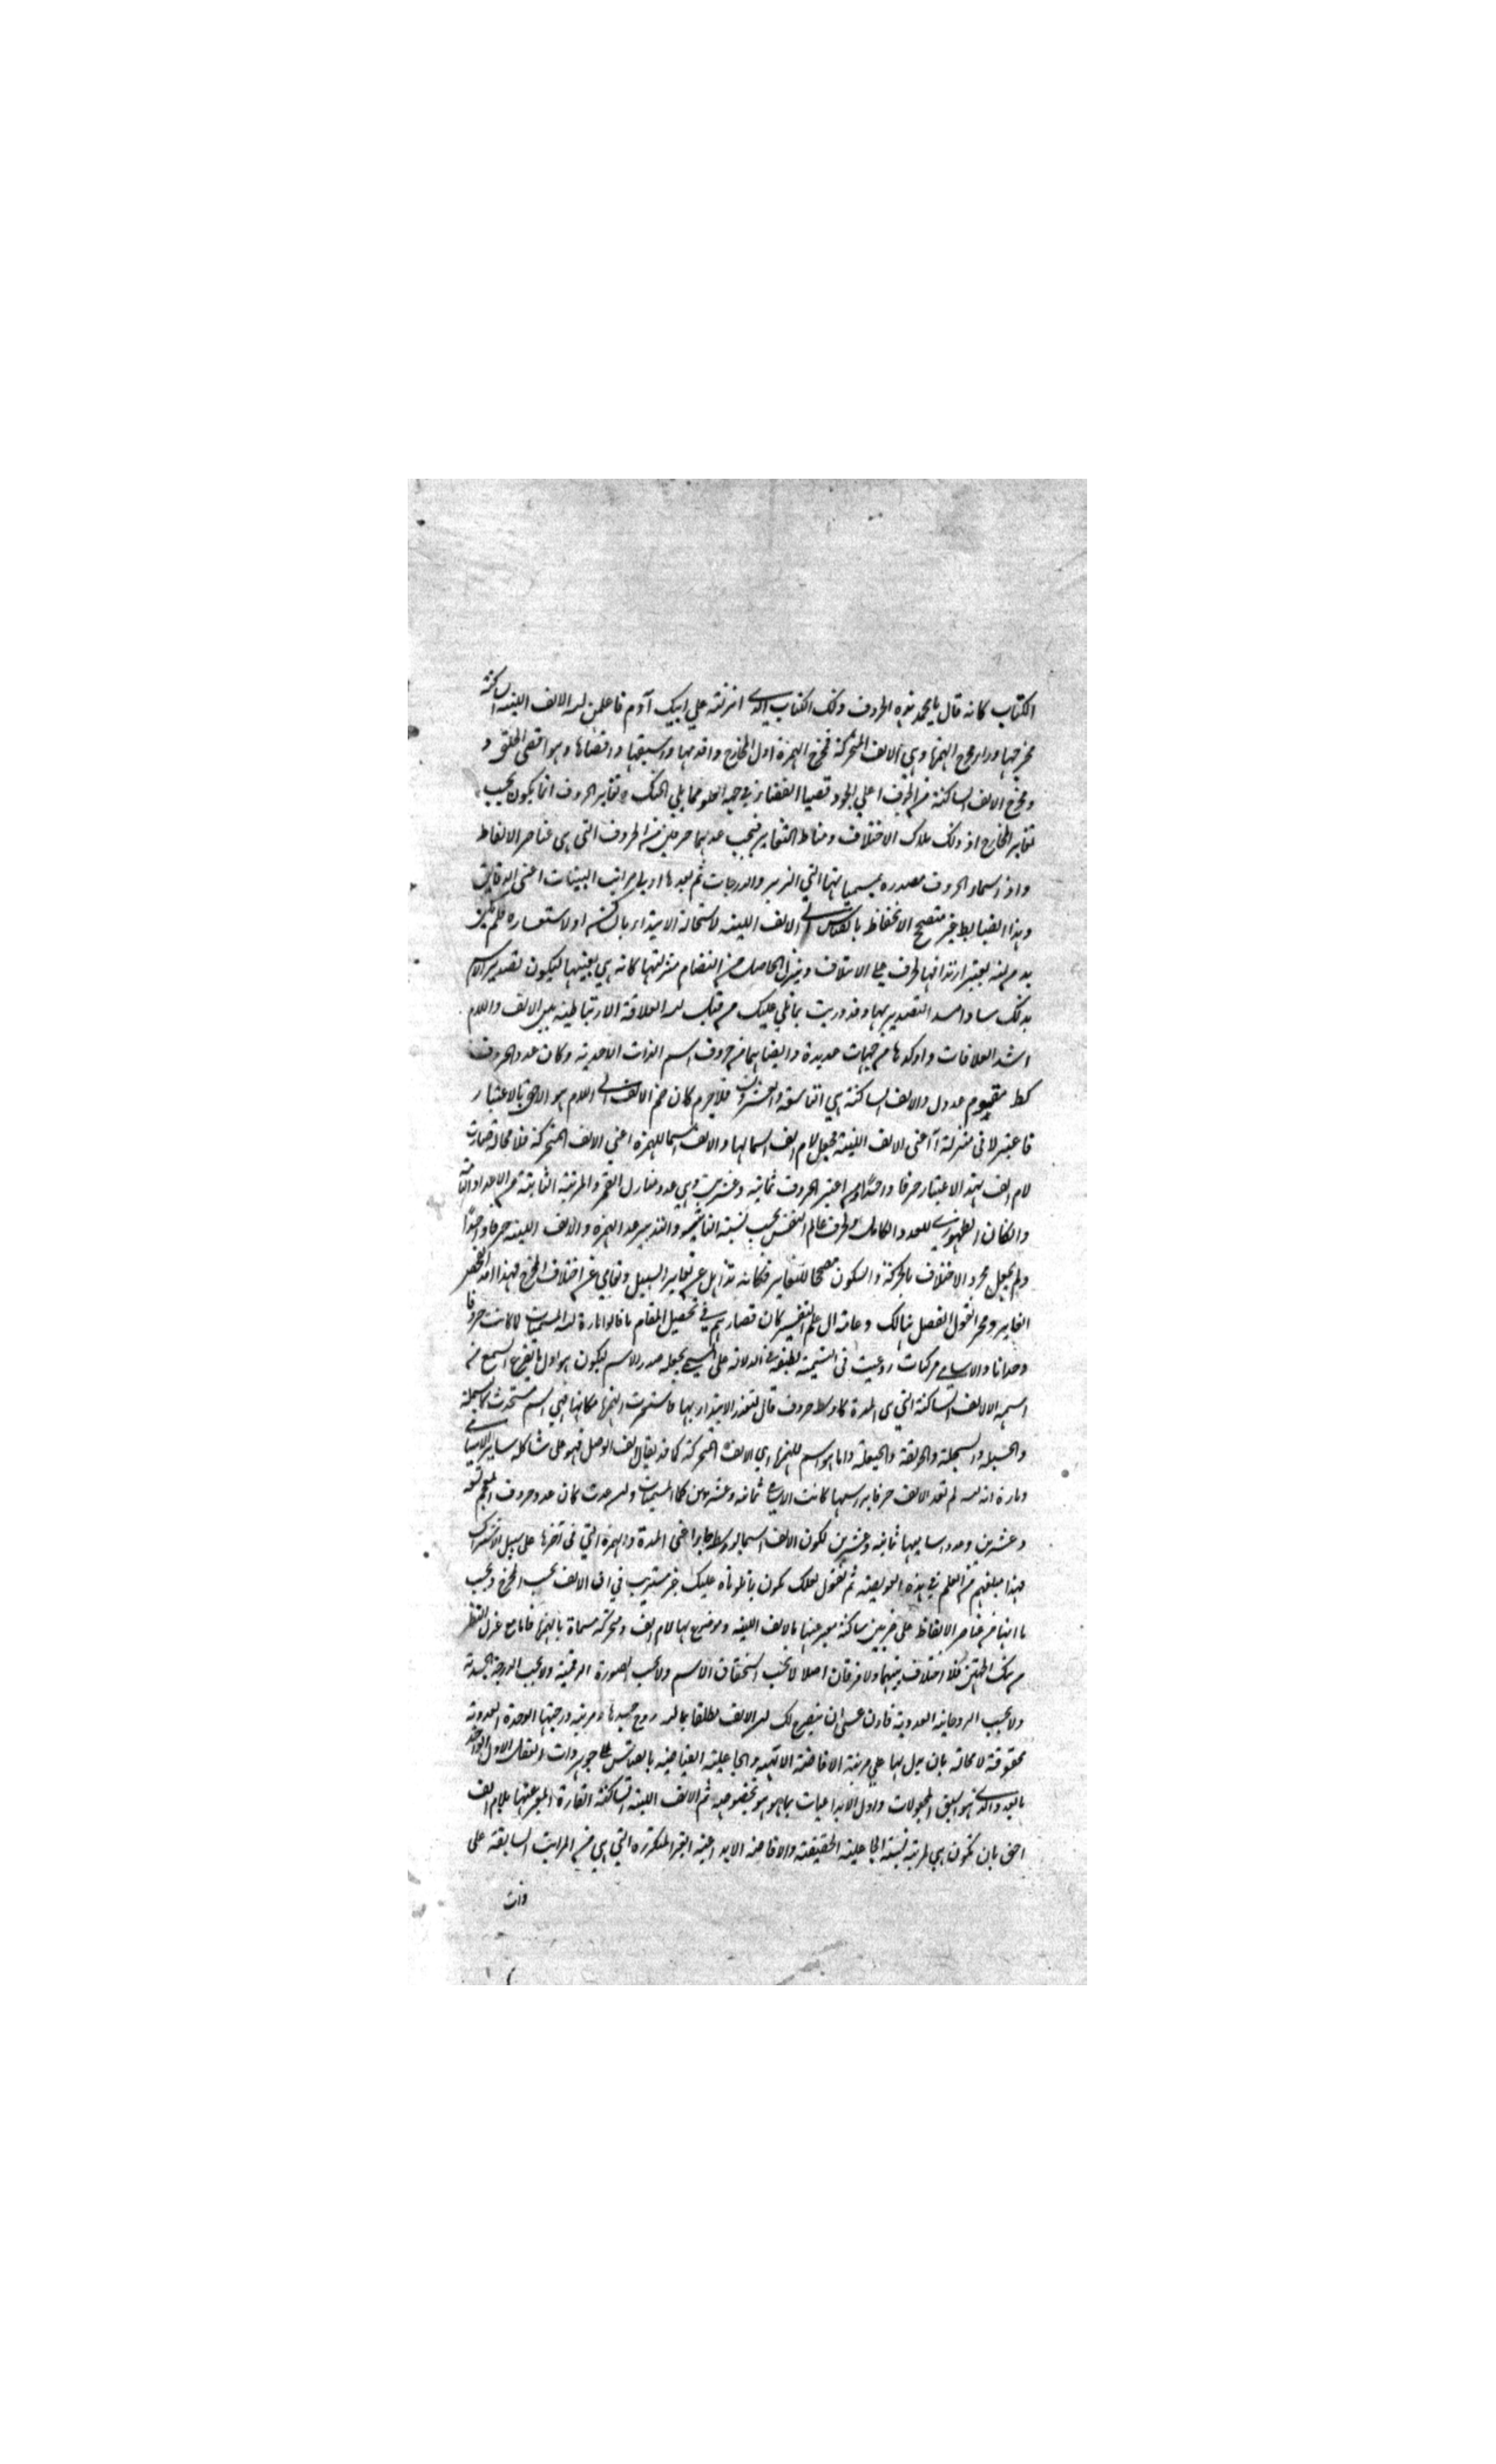 الكتاب كانه قال يا محمد هذه الحروف ذلك الكتاب الذي انزلته علي ابيك آدم فاعلمن ان الالف اللينة الساكنة
مخرجها وراء مخرج الهمزة وهي الالف المتحركة فمخرج الهمزة اول المخارج واقدمها واسبقها واقصاها وهو اقصى الحلق و
ومخرج الالف الساكنة من الجوف اعلي الفضاء في جهة العلو مما يلي الحنك وتغاير الحروف انما يكون بحسب
تغاير المخارج اذ ذلك ملاك الاختلاف ومناط التغاير فيجب عدهما حرفين من الحروف التي هي عناصر الالفاظ
واذ اسماء الحروف مصدرة بمسمياتها التي الزبر والدرجات ثم بعدها مراتب البينات اعنى الدقايق
وهذا الضابط غير متصحح الانحفاظ بالقياس الى الالف اللينة لاستحالة الابتداء بالساكن فلم يكن
بد من ان يعتبر حرف علي الايتلاف وينزل الحاصل من انضمام منزلتها كانه هي بعينها ليكون تصدير الاسم
بذلك سادا مسد التصدير بها وقد دريت بما تلي عليك من قبل ان العلاقة الارتباطية بين الالف واللام
اشد العلاقات واوكدها من جهات عديدة وايضا هما من حروف اسم الذات الاحدية وكان عدد الحروف
كط والالف الساكنة هي التاسعة والعشرون فلا جرم كان ضم الالف الى اللام هو الاحق بالاعتبار
فاعتبر لا في منزلة آ اعنى الالف اللينة فجعل لام الف اسما لها والالف اسما للهمزة اعنى الالف المتحركة فلا محالة صارت
لام الف بهذا الاعتبار حرفا واحدا ومن اعتبر الحروف ثمانية وعشرين وهي عدد منازل القمر والمرتبة الثانية من الاعداد التامة
والكمال الظهوري للعدد الكامل حرف عالم النفس بحسب نسبة التاثير والتدبير عد الهمزة والالف اللينة حرفا واحدا
ولم يجعل مجرد الاختلاف بالحركة والسكون مصححا للتغاير فكانه تذاهل عن تغاير السبيل وتعامى عن اختلاف المخرج فهذا
الغاير ومخ القول الفصل هنالك وعامة اهل علم التفسير كان قصاراهم في تحصيل المقام ما قالوا تارة ان المسميات لما كانت حروفا
وحدانا والاسامي مركبات روعيت في التسمية لطيفة في الدلالة على المسمى بجعله صدر الاسم ليكون هو اول ما يقرع السمع من
اسمه الا الالف الساكنة التي هي المدة كاوسط حروف قال لتعذر الابتداء بها فاستعيرت الهمزة مكانها فهي اسم مستحدث كالبسملة
والحسبلة والسبحلة والحولقة والحيعلة واما هو اسم للهمزة اي الالف المتحركة كما قد يقال الف الوصل فهو على شاكلة ساير الاسامي
وتارة انه ان لم تعد الالف حرفا براسها كانت الاسامي ثمانية وعشرين كالمسميات وان عدت كان عدد حروف المعجم تسعة
وعشرين وعدد اساميها ثمانية وعشرين لكون الالف اسما لاوسط جاء اعنى المدة والهمزة التي في آخرها على سبيل الاشتراك
فهذا مبلغهم من العلم في هذه العويصة ثم نقول لعلك تكون بما تلوناه عليك غير مستريب في ان الالف بحسب المخرج وبحسب
ما انها من عناصر الالفاظ على ضربين ساكنة معبر عنها بالالف اللينة وموضوع لها لام الف ومتحركة مسماة بالهمزة فاما مع عزل النظر
من تينك الجهتين فلا اختلاف بينهما ولا فرقان اصلا لا بحسب استحقاق الاسم ولا بحسب الصورة الرقمية ولا بحسب الدرجة الجسدية
ولا بحسب الروحانية العددية فاذن عسى ان يتصحح لك ان الالف مطلقا بما ان روح جسدها ومرتبة درجتها الوحدة العددية
محقوقة لا محالة بان يدل بها علي مرتبة الافاضة الالهية والجاعلية الفياضية بالقياس الى جوهر ذات العقل الاول الواحد
بالعدد الذي هو اسبق المجعولات واول الابداعيات بما هو هو بخصوصه ثم الالف اللينة الساكنة القارة المعبر عنها بلام الف
احق بان تكون هي لمرتبة نسبة الجاعلية الحقيقية والافاضة الابداعية الغير المتكررة التي هي من المراتب السابقة على
ذات